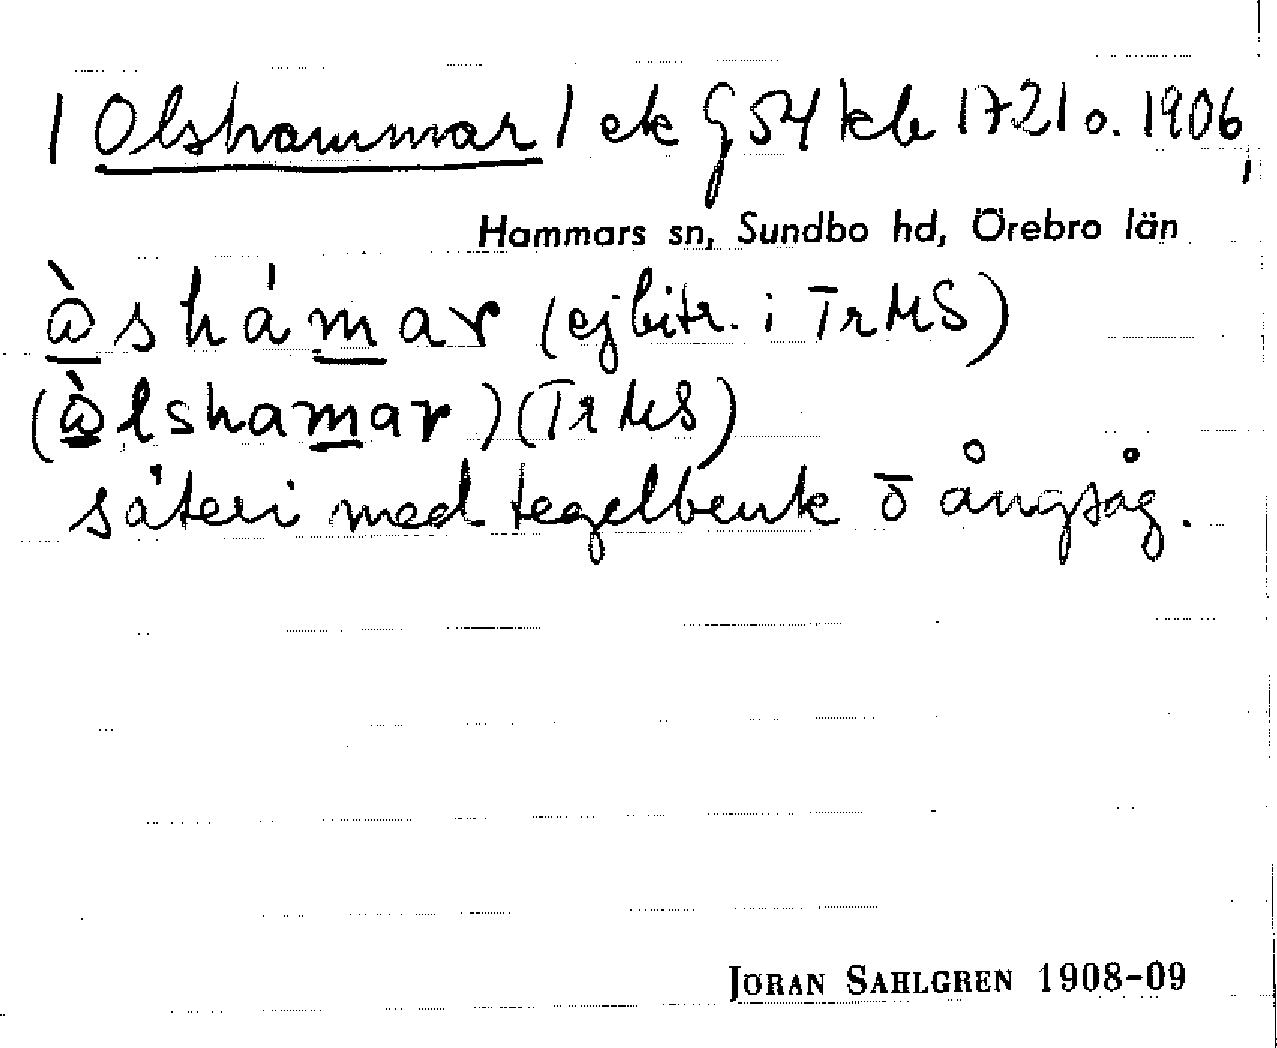 / Olshammar / ek G 54 kb 1721 o. 1906,
Hammars sn, Sundbo hd, Örebro län
àshámar (ej bitr. i TrMS)
(àlshamar) (TrMS)
säteri med tegelbruk o ångsåg.
JÖRAN SAHLGREN 1908-09